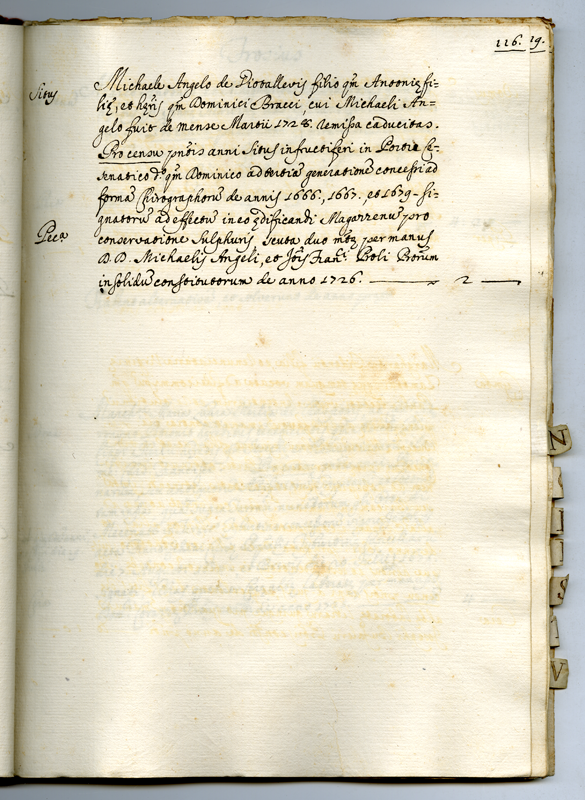 116. 19.
Situs
Michaele Angelo de Piotallevis filio qm Antonii fi=
lii, et hẓiis qm Dominici Bracci, cui Michaeli An=
gelo fuit de mense Martii 1728. remissa caducitas.
Pro censu pñtis anni Situs infructiferi in Portu Se=
senatico d.º qm Dominico ad tertiã generationẽ concessi ad
formã Chirographorũ de annis 1666, 1667. et 1679. si=
gnatorũ ad effectũ in eo ædificandi Magazzenũ pro
Pec.ª
conservatione Sulphuris, scuta duo mtæ per manus
D. D. Michaelis Angeli, et Jõis Fran.ci Poli Procrum
in solidũ constitutorum de anno 1726. 2
N
S
V